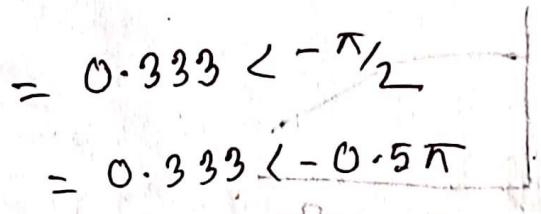 = 0.333 < -π/2
= 0.333 < -0.5π